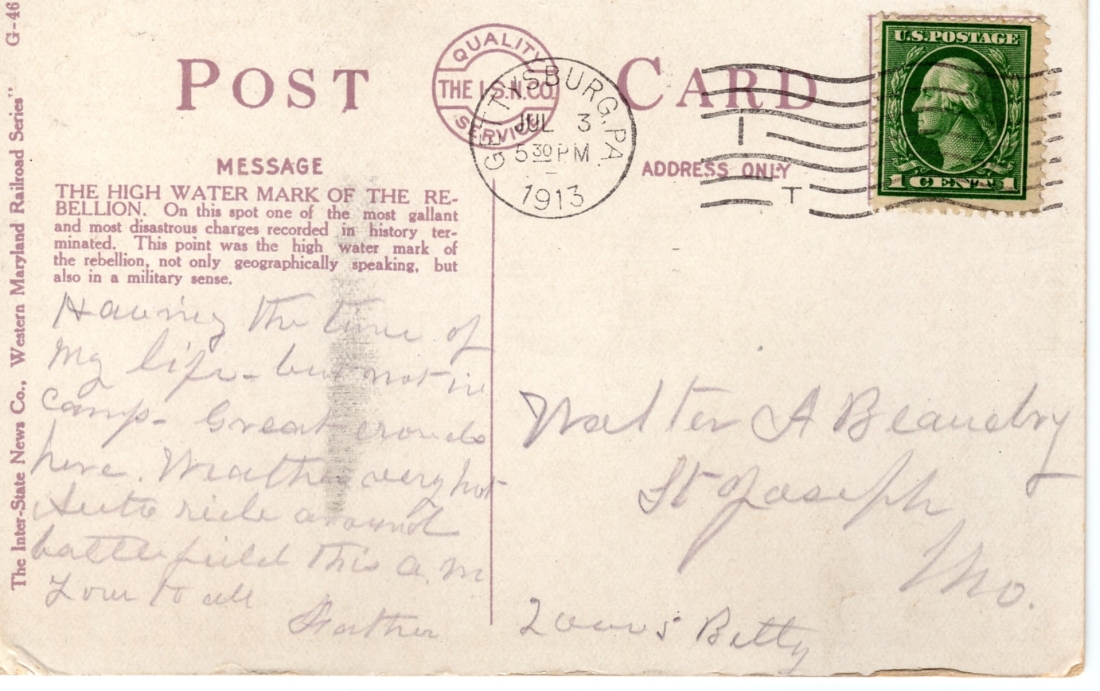 The Inter-State News Co., Western Maryland Railroad Series" G-46
POST CARD
QUALITY
THE I.S.N.CO.
SERVICE
GETTYSBURG, PA.
JUL 3
5 30 PM
1913
T
U.S. POSTAGE
1 CENT 1
MESSAGE
ADDRESS ONLY
THE HIGH WATER MARK OF THE RE-
BELLION. On this spot one of the most gallant
and most disastrous charges recorded in history ter-
minated. This point was the high water mark of
the rebellion, not only geographically speaking, but
also in a military sense.
Having the time of
my life - but not in
camp - Great crowds
here. Weather very hot
Auto ride around
battlefield this a.m
Love to all
Father
Walter A Beaudry
St Joseph
Mo.
Betty